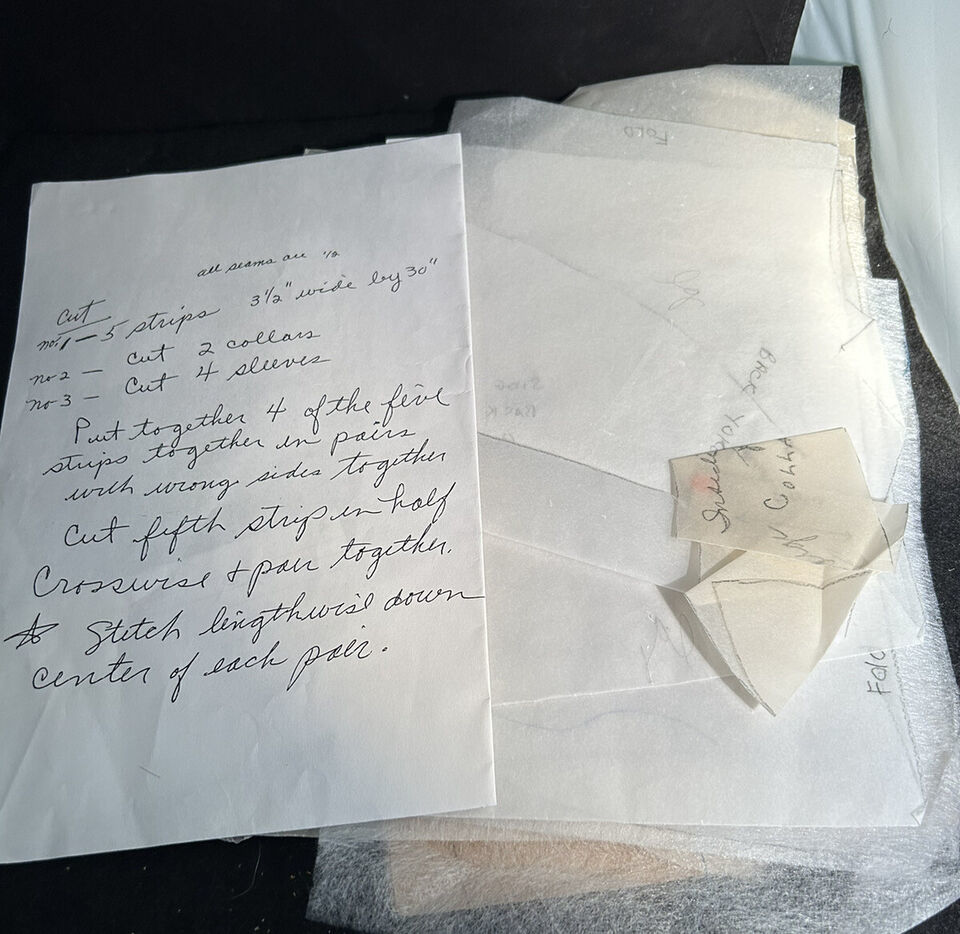 all seams are 1/2
Cut
no. 1 — 5 strips 3 1/2" wide by 30"
no 2 — Cut 2 collars
no 3 — Cut 4 sleeves
Put together 4 of the five
strips together in pairs
with wrong sides together
Cut fifth strip in half
Crosswise & pair together.
☆ Stitch lengthwise down
center of each pair.
FOLD
SIDE
BACK
BACK YOKE
Inside
Fold